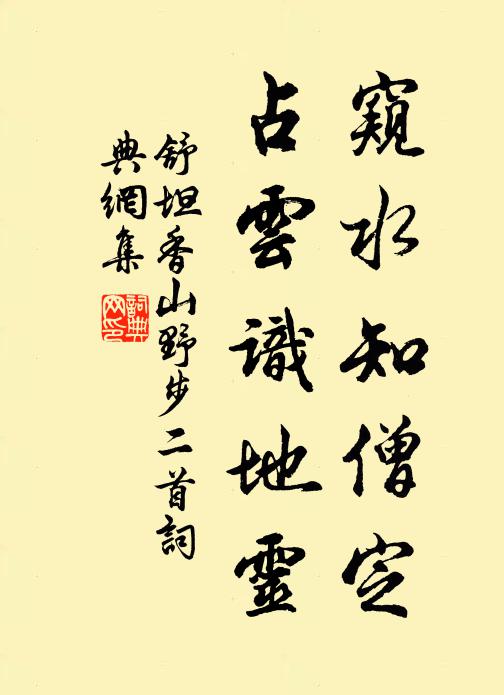 窺水知僧定
占雲識地靈
舒坦香山野步二首詞
典網集
詞典網印